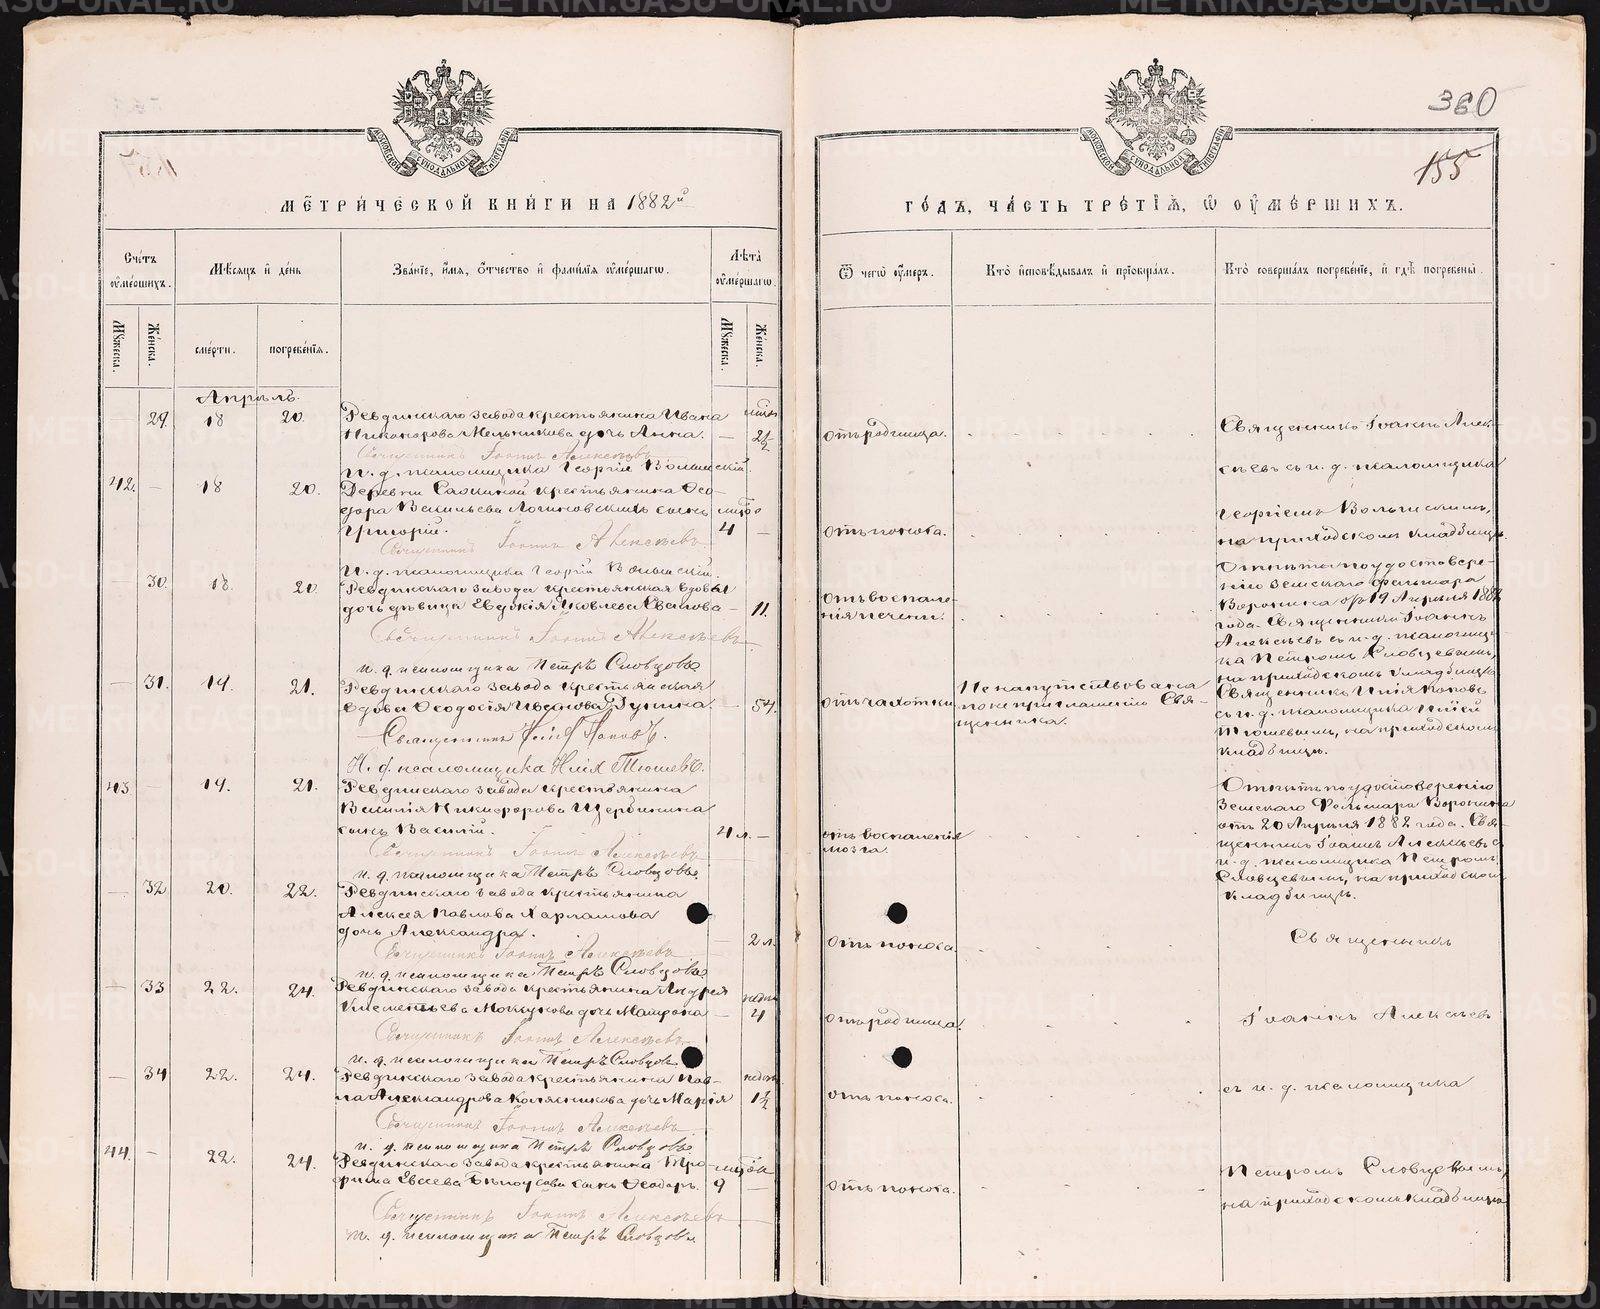 360
155
МЕТРИЧЕСКОЙ КНИГИ НА 1882й
ГОДЪ, ЧАСТЬ ТРЕТІЯ, Ѡ ОУМЕРШИХЪ.
Счетъ оумершихъ.
Мѣсяцъ и день
Званіе, имя, отчество и фамилія оумершагѡ.
Лѣта оумершагѡ.
Ѿ чегѡ оумеръ.
Кто исповѣдывалъ и пріобщалъ.
Кто совершалъ погребеніе, и гдѣ погребены.
Мужеска.
Женска.
смерти.
погребенія.
Мужеска.
Женска.
Апрѣль.
29. 18 20. Ревдинскаго завода крестьянина Ивана
Никонорова Мельникова дочь Анна. — 2½
отъ родимца.
Священникъ Іоаннъ Алексѣевъ
и. д. псаломщика Георгій
42. — 18 20. Деревни крестьянина Ѳео-
дора Васильева сынъ
Григорій. 4 —
отъ поноса.
Священникъ Іоаннъ Алексѣевъ
и. д. псаломщика Георгій
30. 18 20 Ревдинскаго завода крестьянская вдовы
дочь дѣвица Евдокія Яковлева — 11.
отъ воспале-
нія печени.
Священникъ Іоаннъ Алексѣевъ
и. д. псаломщика Петръ Словцовъ
— 31. 19. 21. Ревдинскаго завода крестьянская
вдова Ѳеодосія Иванова — 54.
отъ чахотки
Не напутствована
по не приглашенію Свя-
щенника.
Священникъ Илія Поповъ.
И. д. псаломщика Илія Тюшевъ.
43 — 19. 21. Ревдинскаго завода крестьянина
Василія Никифорова Щербинина
сынъ Василій. 4 л. —
отъ воспаленія
мозга.
Священникъ Іоаннъ Алексѣевъ
и. д. псаломщика Петръ Словцовъ
— 32 20. 22. Ревдинскаго завода крестьянина
Алексѣя Павлова
дочь Александра. — 2 л.
отъ поноса.
Священникъ Іоаннъ Алексѣевъ
и. д. псаломщика Петръ Словцовъ
— 33 22. 24. Ревдинскаго завода крестьянина Андрея
Клементьева дочь Матрона — 4
отъ родимца.
Священникъ Іоаннъ Алексѣевъ
и. д. псаломщика Петръ Словцовъ
— 34 22. 24. Ревдинскаго завода крестьянина Пав-
ла Александрова Колясникова дочь Марія 1½
отъ поноса.
Священникъ Іоаннъ Алексѣевъ
и. д. псаломщика Петръ Словцовъ
44. — 22. 24. Ревдинскаго завода крестьянина Тро-
фима Евсеева Бѣлоусова сынъ Ѳеодоръ. 9 —
отъ поноса.
Священникъ Іоаннъ Алексѣевъ
и. д. псаломщика Петръ Словцовъ
Священникъ Іоаннъ Алек-
сѣевъ съ и. д. псаломщика
Георгіемъ
на приходскомъ кладбищѣ.
по удостовере-
нію Земскаго фельшара
Воронина отъ 19 Апрѣля 1882
года. Священникъ Іоаннъ
Алексѣевъ съ и. д. псаломщи-
ка Петромъ Словцевымъ,
на приходскомъ кладбищѣ
Священникъ Илія Поповъ
съ и. д. псаломщика Иліей
Тюшевымъ, на приходскомъ
кладбищѣ.
по удостоверенію
Земскаго Фельшара Воронина
отъ 20 Апрѣля 1882 года. Свя-
щенникъ Іоаннъ Алексѣевъ съ
и. д. псаломщика Петромъ
Словцевымъ, на приходском
кладбищѣ.
Священникъ
Іоаннъ Алексѣевъ
съ и. д. псаломщика
Петромъ Словцевымъ,
на приходскомъ кладбищѣ
METRIKI.GASO-URAL.RU